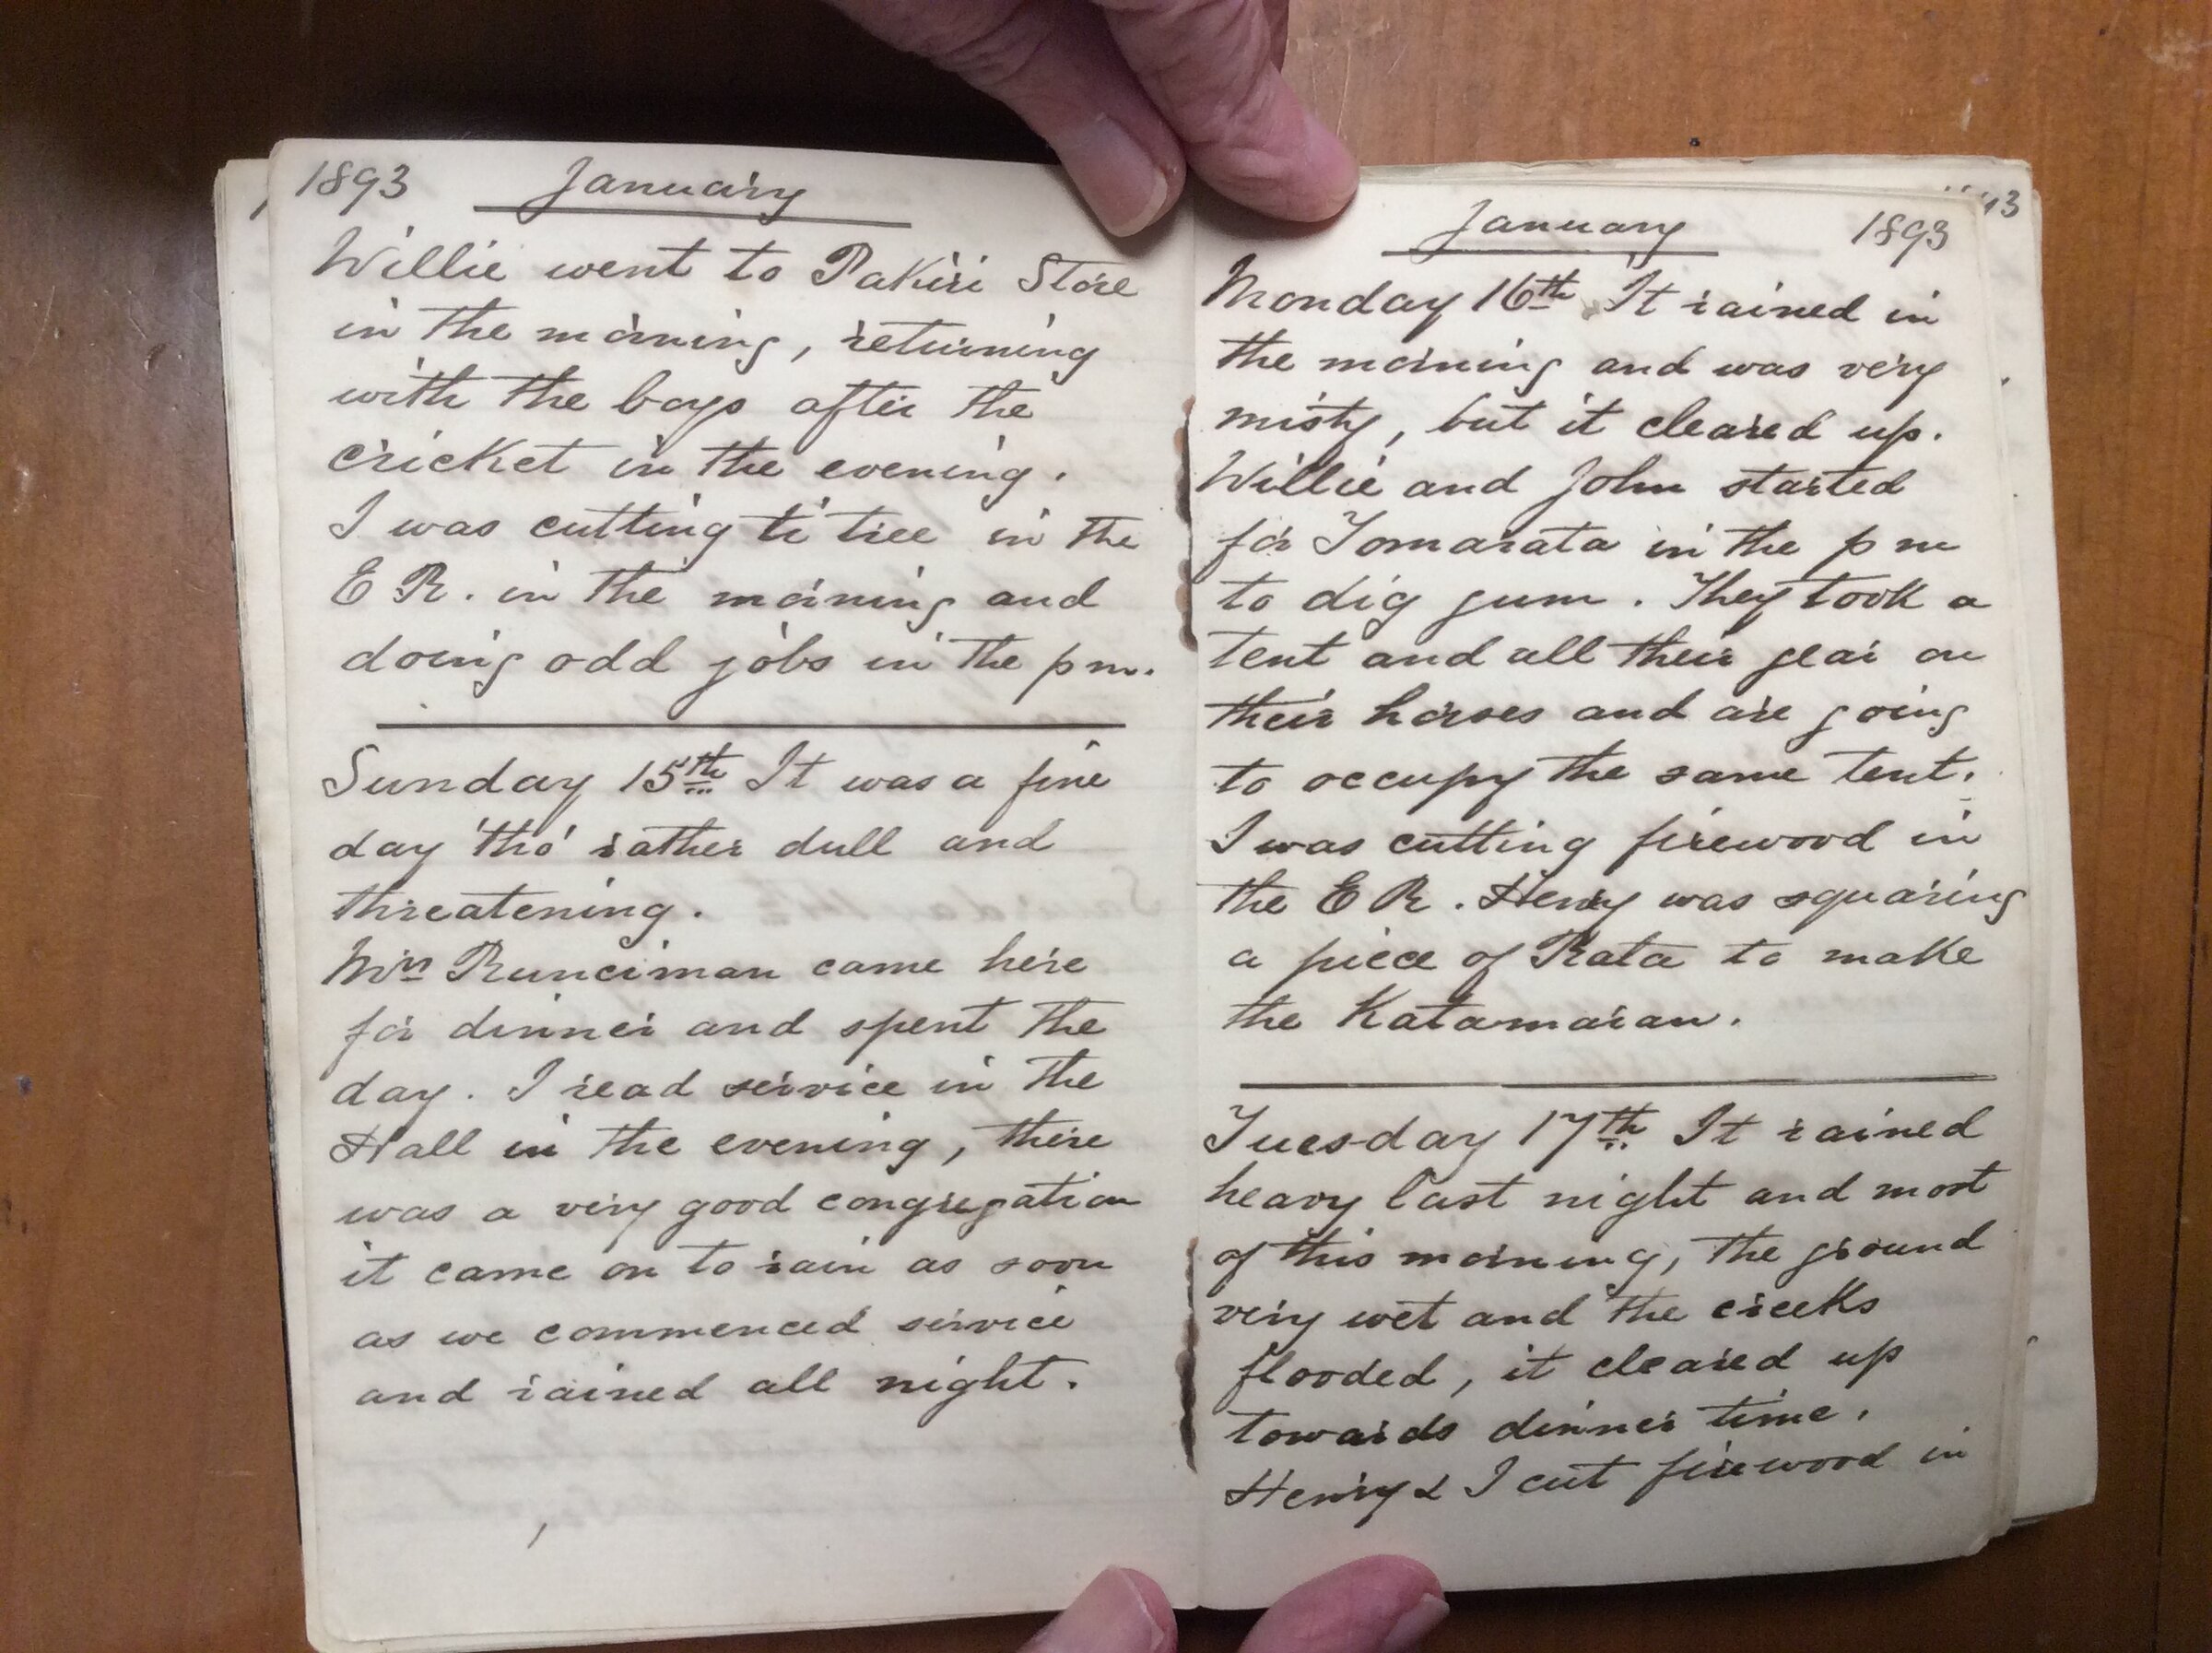 1893 January
Willie went to Pakiri Store
in the morning, returning
with the boys after the
cricket in the evening.
I was cutting ti tree in the
E R. in the morning and
doing odd jobs in the p m.
Sunday 15th It was a fine
day 'tho' rather dull and
threatening.
Mrs Runciman came here
for dinner and spent the
day. I read service in the
Hall in the evening, there
was a very good congregation
it came on to rain as soon
as we commenced service
and rained all night.
January 1893
Monday 16th It rained in
the morning and was very
misty, but it cleared up.
Willie and John started
for Tomarata in the p m
to dig gum. They took a
tent and all their gear on
their horses and are going
to occupy the same tent.
I was cutting firewood in
the E R. Henry was squaring
a piece of Rata to make
the Katamaran.
Tuesday 17th It rained
heavy last night and most
of this morning, the ground
very wet and the creeks
flooded, it cleared up
towards dinner time.
Henry & I cut firewood in